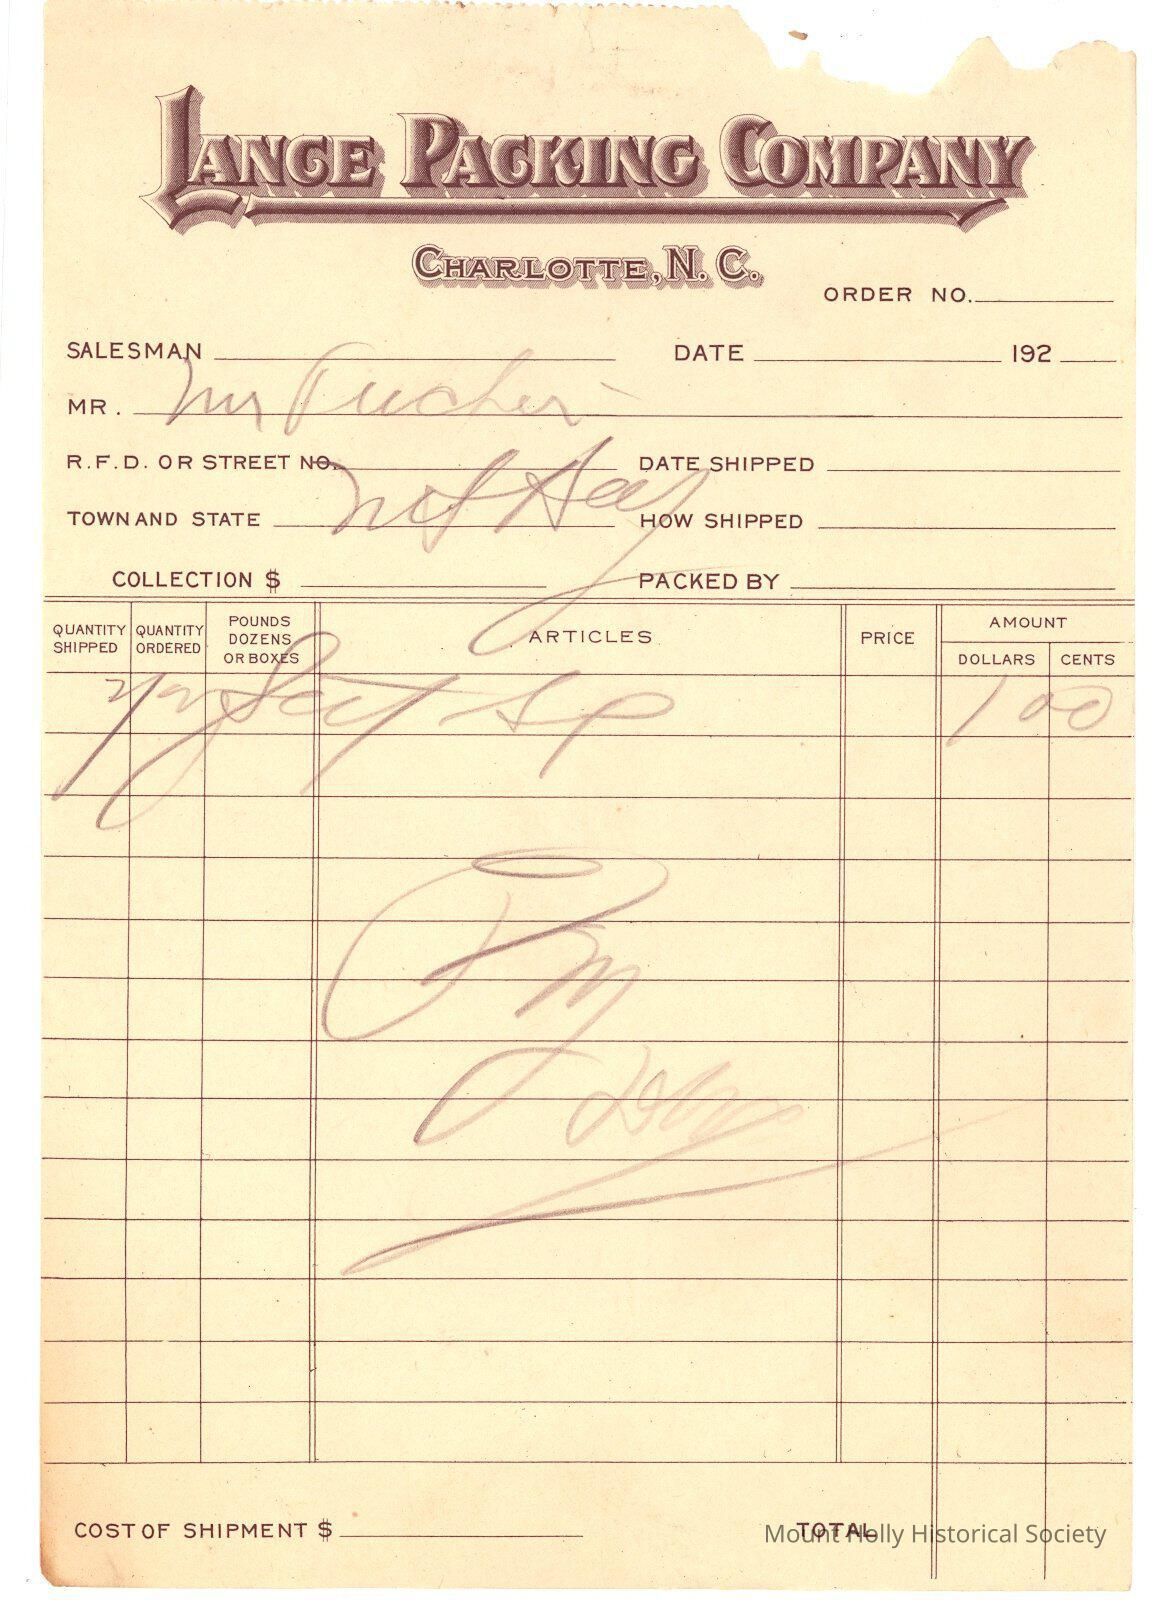 LANGE PACKING COMPANY
CHARLOTTE, N. C.
ORDER NO.
SALESMAN DATE 192
MR. Mr Tucker
R.F.D. OR STREET NO. DATE SHIPPED
TOWN AND STATE HOW SHIPPED
COLLECTION $ PACKED BY
QUANTITY SHIPPED QUANTITY ORDERED POUNDS DOZENS OR BOXES ARTICLES PRICE AMOUNT
DOLLARS CENTS
1 00
COST OF SHIPMENT $ TOTAL
Mount Holly Historical Society